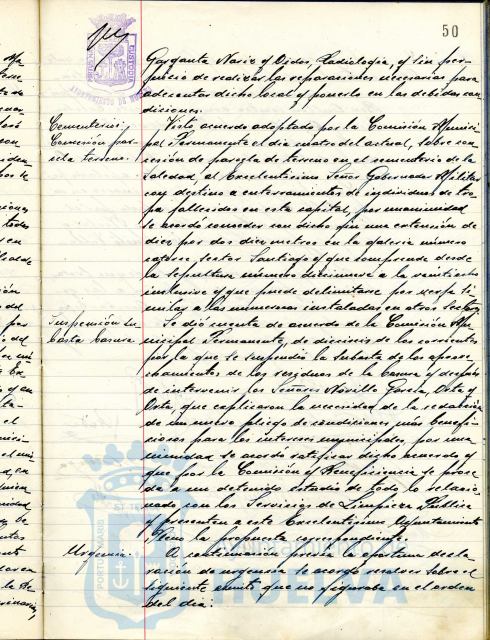 50
Garganta Nariz y Oidos, Radiologia, y sin per-
juicio de realizar las reparaciones necesarias para
adecentar dicho local y ponerlo en las debidas con
diciones.
Cementerio;
Concesión par-
cela terreno.
Visto acuerdo adoptado por la Comisión Munici
pal Permanente el dia cuatro del actual, sobre con
cesión de parcela de terreno en el cementerio de la
Soledad, al Excelentisimo Señor Gobernador Militar
con destino a enterramientos de individuos de tro
pa fallecidos en esta capital, por unanimidad
se acordó conceder con dicho fin una extensión de
diez por dos diez metros en la galeria número
catorce, sector Santiago y que comprende desde
la sepultura número diecinueve a la veintiocho
inclusive y que puede delimitarse por verja si
milar a las numerosas instaladas en otros sectores.
Suspensión Su
basta basura
Se dió cuenta de acuerdo de la Comisión Mu
nicipal Permanente, de dieciseis de los corrientes
por la que se suspendia la subasta de los aprove
chamientos de los residuos de la basura y después
de intervenir los Señores Novillo Garcia, Orta y
Orta, que explicaron la necesidad de la redacción
de un nuevo pliego de condiciones más benefi-
ciosas para los intereses municipales, por una
nimidad se acordó ratificar dicho acuerdo y
que por la Comisión de Beneficiencia se proce
da a un detenido estudio de todo lo relacio
nado con los Servicios de Limpieza Pública
y presenten a este Excelentisimo Ayuntamiento
Pleno la propuesta correspondiente.
Urgencia.
A continuación y previa la oportuna decla-
ración de urgencia se acordó resolver sobre el
siguiente asunto que no figuraba en el orden
del dia:
HUELVA